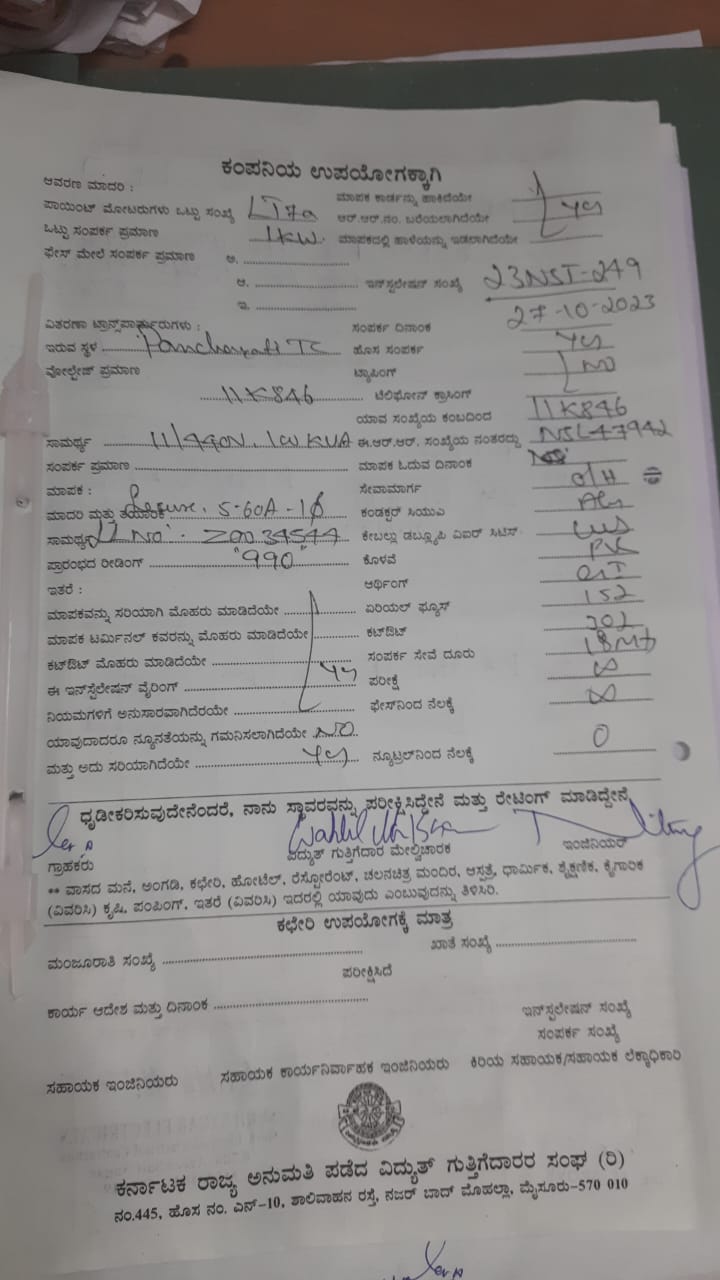 ಕಂಪನಿಯ ಉಪಯೋಗಕ್ಕಾಗಿ
ಆವರಣ ಮಾದರಿ :
ಮಾಪಕ ಕಾರ್ಡನ್ನು ಹಾಕಿದೆಯೇ
ಪಾಯಿಂಟ್ ಮೋಟರುಗಳು ಒಟ್ಟು ಸಂಖ್ಯೆ LT7a ಆರ್.ಆರ್.ನಂ. ಬರೆಯಲಾಗಿದೆಯೇ yes
ಒಟ್ಟು ಸಂಪರ್ಕ ಪ್ರಮಾಣ 1KW. ಮಾಪಕದಲ್ಲಿ ಹಾಳೆಯನ್ನು ಇಡಲಾಗಿದೆಯೇ
ಫೇಸ್ ಮೇಲೆ ಸಂಪರ್ಕ ಪ್ರಮಾಣ ಅ. ........................
ಆ. ........................ ಇನ್‌ಸ್ಟಲೇಷನ್ ಸಂಖ್ಯೆ 23NST-249
ಇ. ........................ 27-10-2023
ವಿತರಣಾ ಟ್ರಾನ್ಸ್‌ಫಾರ್ಮರುಗಳು : ಸಂಪರ್ಕ ದಿನಾಂಕ
ಇರುವ ಸ್ಥಳ Panchayati TC ಹೊಸ ಸಂಪರ್ಕ yes
ವೋಲ್ಟೇಜ್ ಪ್ರಮಾಣ ಟ್ಯಾಪಿಂಗ್ NO
11K846 ಟೆಲಿಫೋನ್ ಕ್ರಾಸಿಂಗ್
ಯಾವ ಸಂಖ್ಯೆಯ ಕಂಬದಿಂದ 11K846
ಸಾಮರ್ಥ್ಯ KVA ಈ.ಆರ್.ಆರ್. ಸಂಖ್ಯೆಯ ನಂತರದ್ದು NSL47942
ಸಂಪರ್ಕ ಪ್ರಮಾಣ ........................ ಮಾಪಕ ಓದುವ ದಿನಾಂಕ
ಮಾಪಕ : ಸೇವಾಮಾರ್ಗ O/H
ಮಾದರಿ ಮತ್ತು ತಯಾರಿಕೆ 5-60A-1ϕ ಕಂಡಕ್ಟರ್ ಸಿಯುಎ
ಸಾಮರ್ಥ್ಯ No: Z0034544 ಕೇಬಲ್ಲು ಡಬ್ಲ್ಯೂಪಿ ವಿಐರ್ ಸಿಟಿಸ್
ಪ್ರಾರಂಭದ ರೀಡಿಂಗ್ "990" ಕೊಳವೆ
ಇತರೆ : ಆರ್ಥಿಂಗ್
ಮಾಪಕವನ್ನು ಸರಿಯಾಗಿ ಮೊಹರು ಮಾಡಿದೆಯೇ ಏರಿಯಲ್ ಫ್ಯೂಸ್ 152
ಮಾಪಕ ಟರ್ಮಿನಲ್ ಕವರನ್ನು ಮೊಹರು ಮಾಡಿದೆಯೇ ಕಟ್‌ಔಟ್
ಕಟ್‌ಔಟ್ ಮೊಹರು ಮಾಡಿದೆಯೇ ಸಂಪರ್ಕ ಸೇವೆ ದೂರು 18Mt
ಈ ಇನ್‌ಸ್ಟೆಲೇಷನ್ ವೈರಿಂಗ್ yes ಪರೀಕ್ಷೆ ∞
ನಿಯಮಗಳಿಗೆ ಅನುಸಾರವಾಗಿದೆರಯೇ ಫೇಸ್‌ನಿಂದ ನೆಲಕ್ಕೆ ∞
ಯಾವುದಾದರೂ ನ್ಯೂನತೆಯನ್ನು ಗಮನಿಸಲಾಗಿದೆಯೇ NO
ಮತ್ತು ಅದು ಸರಿಯಾಗಿದೆಯೇ yes ನ್ಯೂಟ್ರಲ್‌ನಿಂದ ನೆಲಕ್ಕೆ 0
ಧೃಡೀಕರಿಸುವುದೇನೆಂದರೆ, ನಾನು ಸ್ಥಾವರವನ್ನು ಪರೀಕ್ಷಿಸಿದ್ದೇನೆ ಮತ್ತು ರೇಟಿಂಗ್ ಮಾಡಿದ್ದೇನೆ
ಗ್ರಾಹಕರು ವಿದ್ಯುತ್ ಗುತ್ತಿಗೆದಾರ ಮೇಲ್ವಿಚಾರಕ ಇಂಜಿನಿಯರ್
** ವಾಸದ ಮನೆ, ಅಂಗಡಿ, ಕಛೇರಿ, ಹೋಟೆಲ್, ರೆಸ್ಟೋರೆಂಟ್, ಚಲನಚಿತ್ರ ಮಂದಿರ, ಆಸ್ಪತ್ರೆ, ಧಾರ್ಮಿಕ, ಶೈಕ್ಷಣಿಕ, ಕೈಗಾರಿಕೆ
(ವಿವರಿಸಿ) ಕೃಷಿ, ಪಂಪಿಂಗ್, ಇತರೆ (ವಿವರಿಸಿ) ಇದರಲ್ಲಿ ಯಾವುದು ಎಂಬುವುದನ್ನು ತಿಳಿಸಿರಿ.
ಕಛೇರಿ ಉಪಯೋಗಕ್ಕೆ ಮಾತ್ರ
ಮಂಜೂರಾತಿ ಸಂಖ್ಯೆ ........................ ಖಾತೆ ಸಂಖ್ಯೆ ........................
ಪರೀಕ್ಷಿಸಿದೆ
ಕಾರ್ಯ ಆದೇಶ ಮತ್ತು ದಿನಾಂಕ ........................ ಇನ್‌ಸ್ಟಲೇಷನ್ ಸಂಖ್ಯೆ
ಸಂಪರ್ಕ ಸಂಖ್ಯೆ
ಸಹಾಯಕ ಇಂಜಿನಿಯರು ಸಹಾಯಕ ಕಾರ್ಯನಿರ್ವಾಹಕ ಇಂಜಿನಿಯರು ಕಿರಿಯ ಸಹಾಯಕ/ಸಹಾಯಕ ಲೆಕ್ಕಾಧಿಕಾರಿ
ಕರ್ನಾಟಕ ರಾಜ್ಯ ಅನುಮತಿ ಪಡೆದ ವಿದ್ಯುತ್ ಗುತ್ತಿಗೆದಾರರ ಸಂಘ (ರಿ)
ನಂ.445, ಹೊಸ ನಂ. ಎನ್-10, ಶಾಲಿವಾಹನ ರಸ್ತೆ, ನಜರ್ ಬಾದ್ ಮೊಹಲ್ಲಾ, ಮೈಸೂರು-570 010